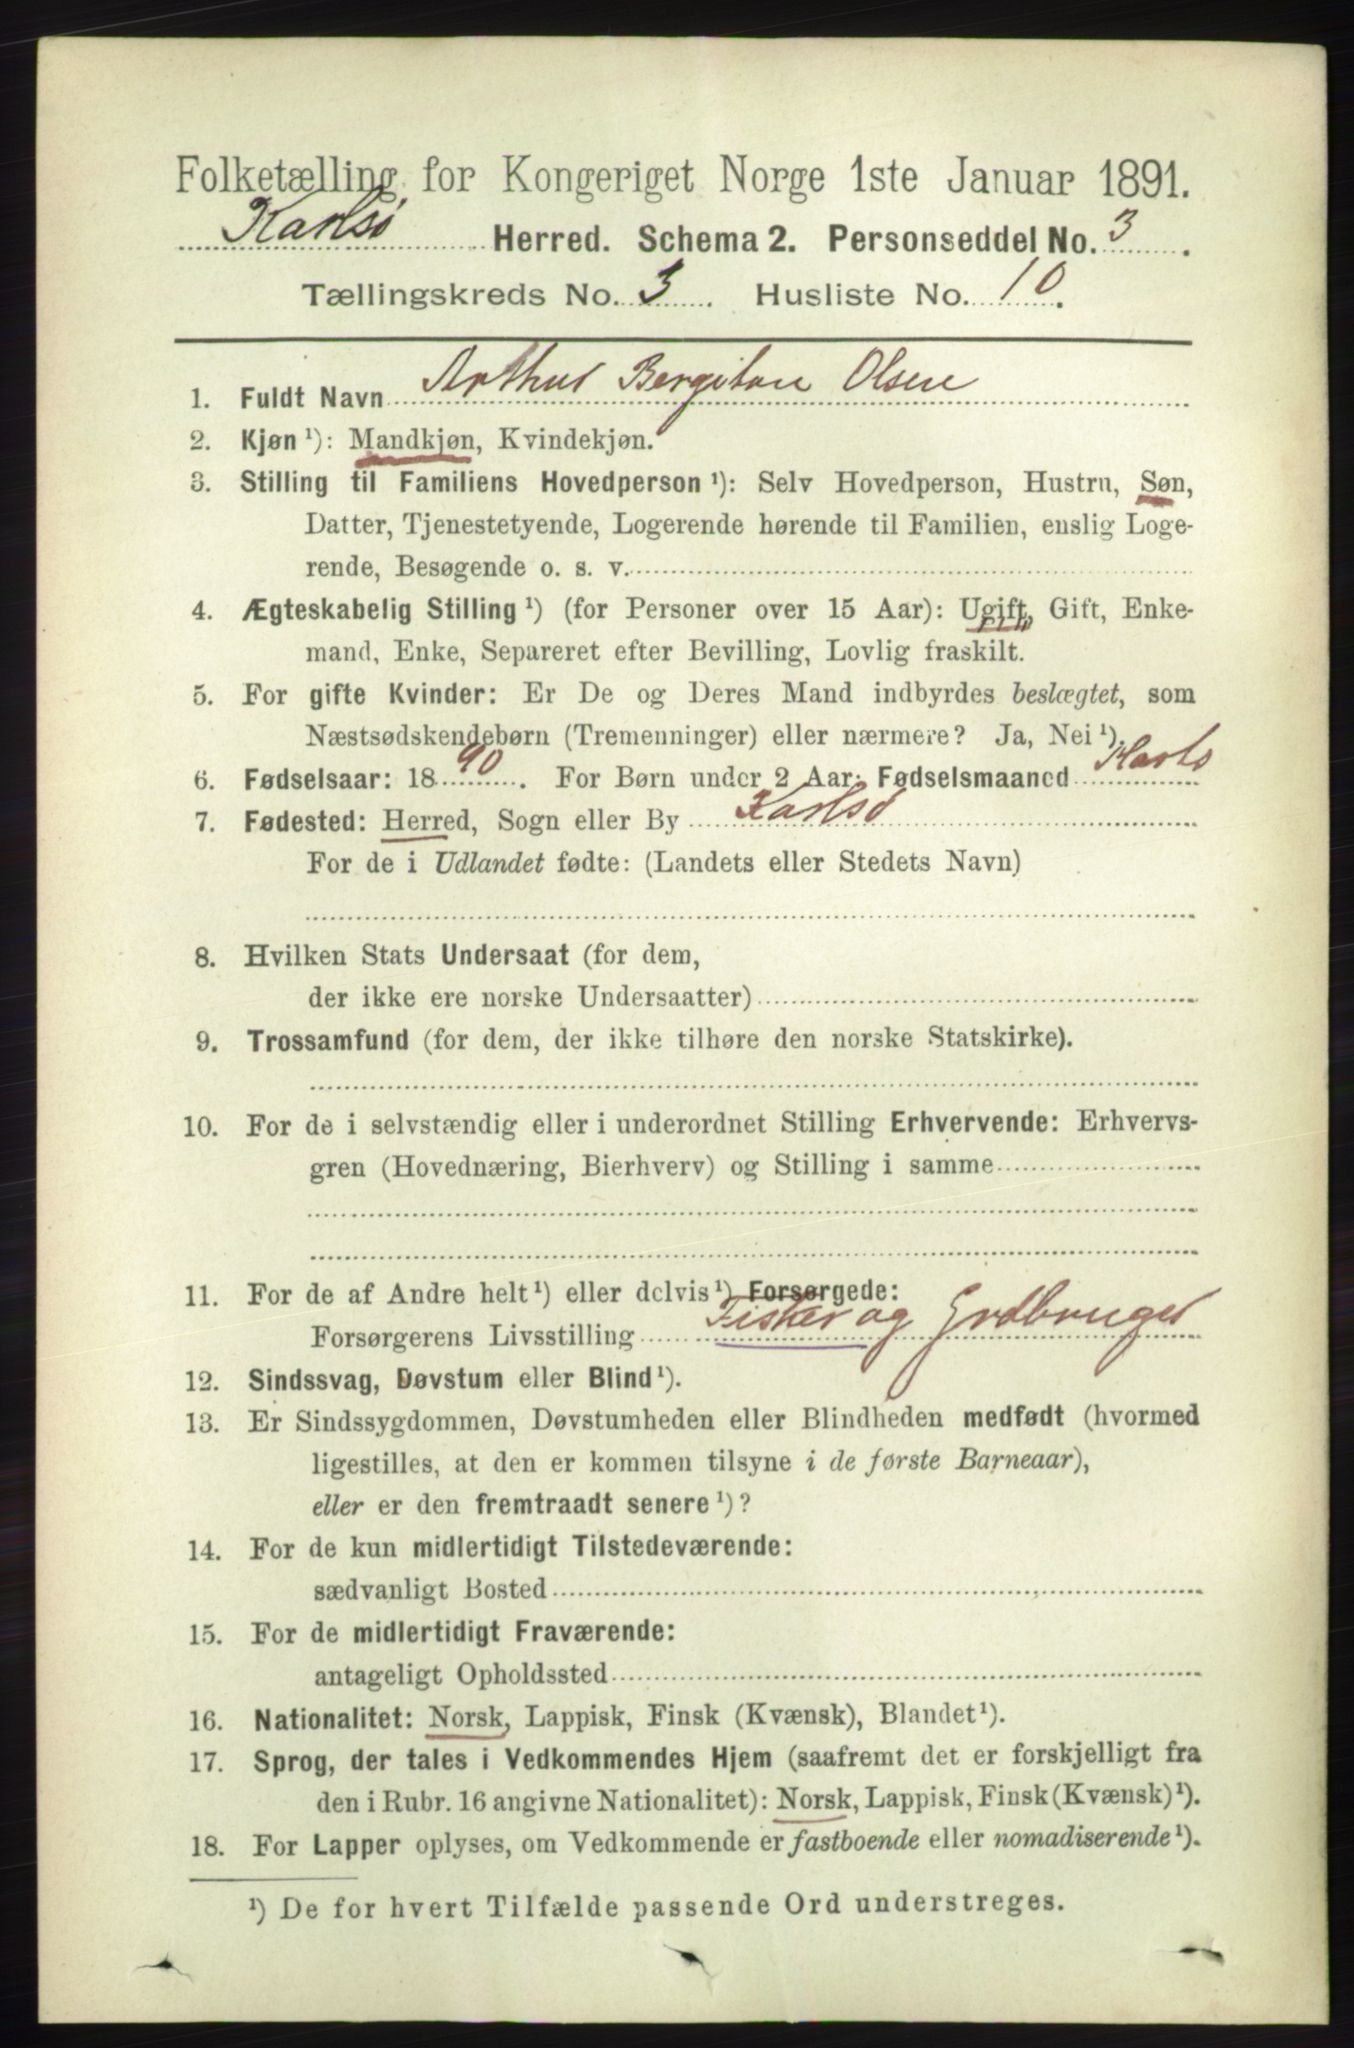 Folketælling for Kongeriget Norge 1ste Januar 1891.
Karlsø Herred. Schema 2. Personseddel No. 3.
Tællingskreds No. 3. Husliste No. 10.
1. Fuldt Navn Arthur Bergiton Olsen
2. Kjøn ¹): Mandkjøn, Kvindekjøn.
3. Stilling til Familiens Hovedperson ¹): Selv Hovedperson, Hustru, Søn,
Datter, Tjenestetyende, Logerende hørende til Familien, enslig Loge-
rende, Besøgende o. s. v.
4. Ægteskabelig Stilling ¹) (for Personer over 15 Aar): Ugift, Gift, Enke-
mand, Enke, Separeret efter Bevilling, Lovlig fraskilt.
5. For gifte Kvinder: Er De og Deres Mand indbyrdes beslægtet, som
Næstsødskendebørn (Tremenninger) eller nærmere? Ja, Nei ¹).
6. Fødselsaar: 1890. For Børn under 2 Aar: Fødselsmaaned Marts
7. Fødested: Herred, Sogn eller By Karlsø
For de i Udlandet fødte: (Landets eller Stedets Navn)
8. Hvilken Stats Undersaat (for dem,
der ikke ere norske Undersaatter)
9. Trossamfund (for dem, der ikke tilhøre den norske Statskirke).
10. For de i selvstændig eller i underordnet Stilling Erhvervende: Erhvervs-
gren (Hovednæring, Bierhverv) og Stilling i samme
11. For de af Andre helt ¹) eller delvis ¹) Forsørgede:
Forsørgerens Livsstilling Fisker og Gröbruger
12. Sindssvag, Døvstum eller Blind ¹).
13. Er Sindssygdommen, Døvstumheden eller Blindheden medfødt (hvormed
ligestilles, at den er kommen tilsyne i de første Barneaar),
eller er den fremtraadt senere ¹)?
14. For de kun midlertidigt Tilstedeværende:
sædvanligt Bosted
15. For de midlertidigt Fraværende:
antageligt Opholdssted
16. Nationalitet: Norsk, Lappisk, Finsk (Kvænsk), Blandet ¹).
17. Sprog, der tales i Vedkommendes Hjem (saafremt det er forskjelligt fra
den i Rubr. 16 angivne Nationalitet): Norsk, Lappisk, Finsk (Kvænsk) ¹).
18. For Lapper oplyses, om Vedkommende er fastboende eller nomadiserende ¹).
¹) De for hvert Tilfælde passende Ord understreges.